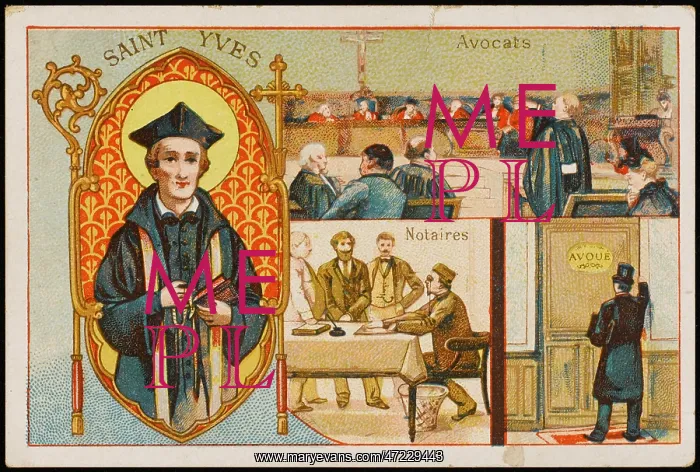 SAINT YVES
Avocats
Notaires
AVOUÉ
ME
PL
ME
PL
www.maryevans.com/47229443